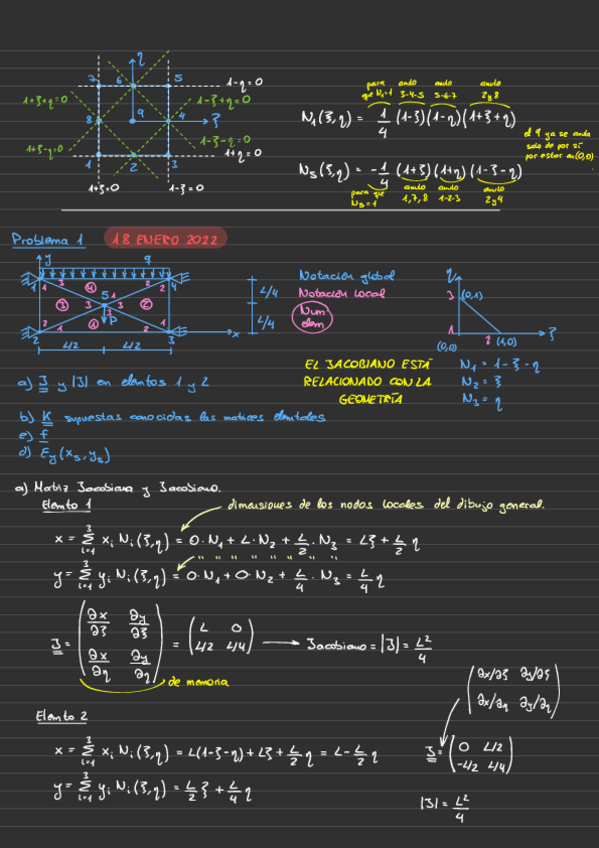 η
7 6 5
1-η=0
1+ξ+η=0
1-ξ+η=0
8 9 4 ξ
1+ξ-η=0
1-ξ-η=0
1 2 3
1+η=0
1+ξ=0
1-ξ=0
para que N₁=1
anulo 3-4-5
anulo 5-6-7
anulo 2 y 8
N₁(ξ,η) = 1/4 (1-ξ)(1-η)(1+ξ+η)
el 9 ya se anula
solo de por sí
por estar en (0,0)
N₅(ξ,η) = -1/4 (1+ξ)(1+η)(1-ξ-η)
para que N₅=1
anulo 1,7,8
anulo 1-2-3
anulo 2 y 4
Problema 1 18 ENERO 2022
y q
1 4
3 4 2
5
3 2
P
1
2 3 x
L/2 L/2
L/4
L/4
Notación global
Notación local
Num elem
η
3 (0,1)
1 2 (1,0) ξ
(0,0)
EL JACOBIANO ESTÁ
RELACIONADO CON LA
GEOMETRÍA
N₁ = 1-ξ-η
N₂ = ξ
N₃ = η
a) J y |J| en elmtos 1 y 2
b) K supuestas conocidas las matrices elmtales
c) f
d) Ey(x₅,y₅)
a) Matriz Jacobiana y Jacobiano.
Elmto 1
dimensiones de los nodos locales del dibujo general.
x = Σ³ᵢ₌₁ xᵢ Nᵢ(ξ,η) = 0·N₁ + L·N₂ + L/2·N₃ = Lξ + L/2 η
" " " " " " "
y = Σ³ᵢ₌₁ yᵢ Nᵢ(ξ,η) = 0·N₁ + 0·N₂ + L/4·N₃ = L/4 η
J = (∂x/∂ξ ∂y/∂ξ ; ∂x/∂η ∂y/∂η) = (L 0 ; L/2 L/4) → Jacobiano = |J| = L²/4
de memoria
Elmto 2
(∂x/∂ξ ∂y/∂ξ ; ∂x/∂η ∂y/∂η)
x = Σ³ᵢ₌₁ xᵢ Nᵢ(ξ,η) = L(1-ξ-η) + Lξ + L/2 η = L - L/2 η
J = (0 L/2 ; -L/2 L/4)
y = Σ³ᵢ₌₁ yᵢ Nᵢ(ξ,η) = L/2 ξ + L/4 η
|J| = L²/4